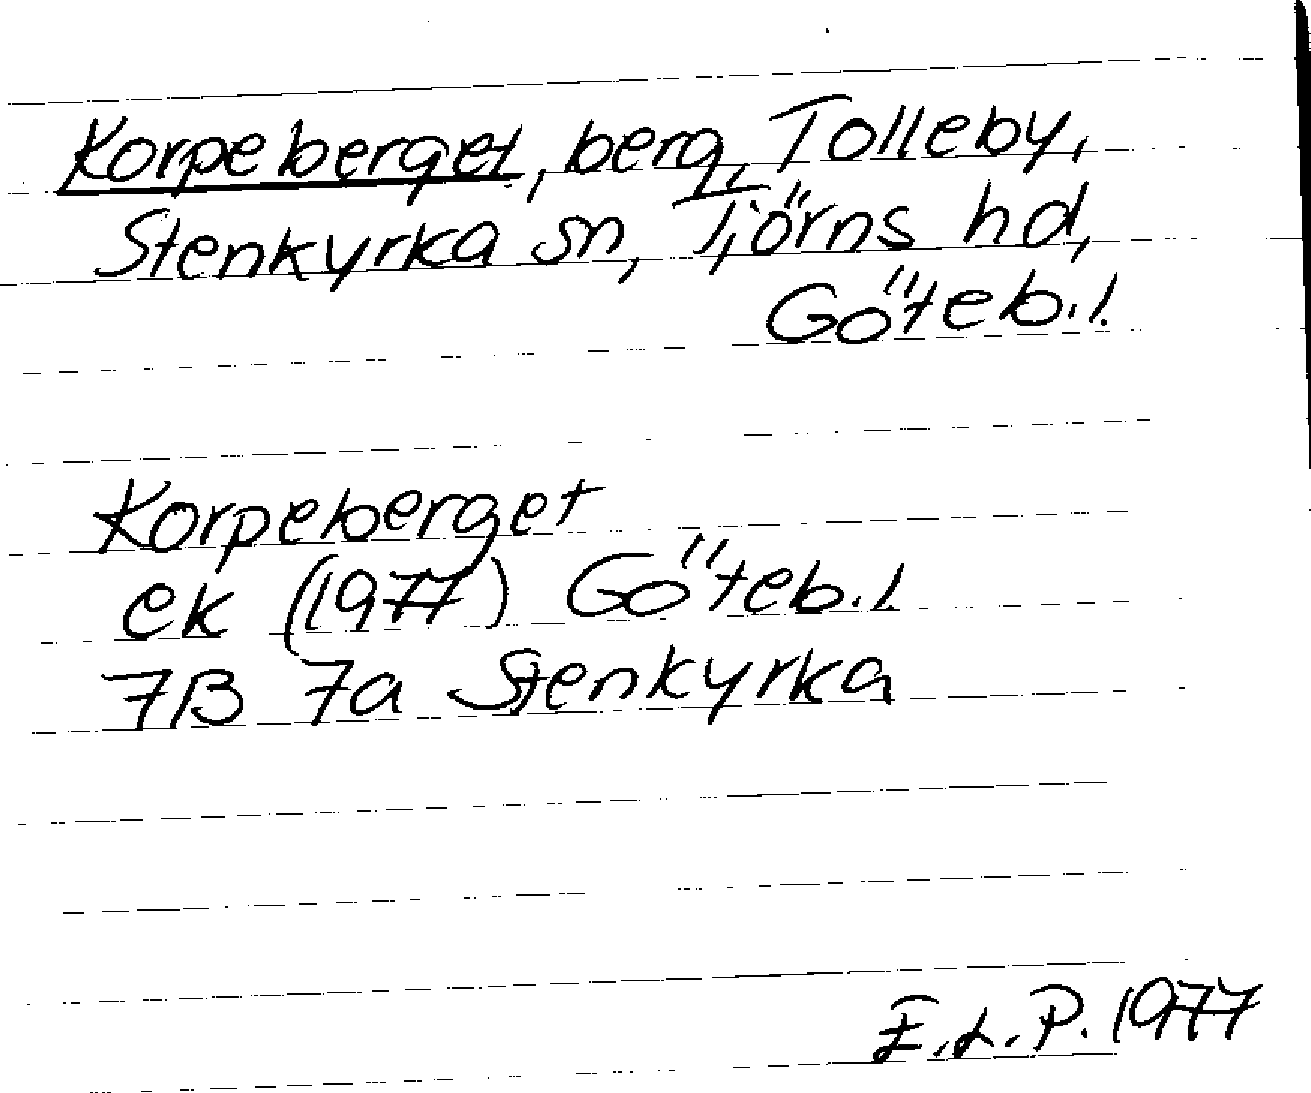 Korpeberget, berg, Tolleby,
Stenkyrka sn, Tjörns hd,
Göteb.l.
Korpeberget
ek (1977) Göteb.l.
7B 7a Stenkyrka
E.L.P. 1977